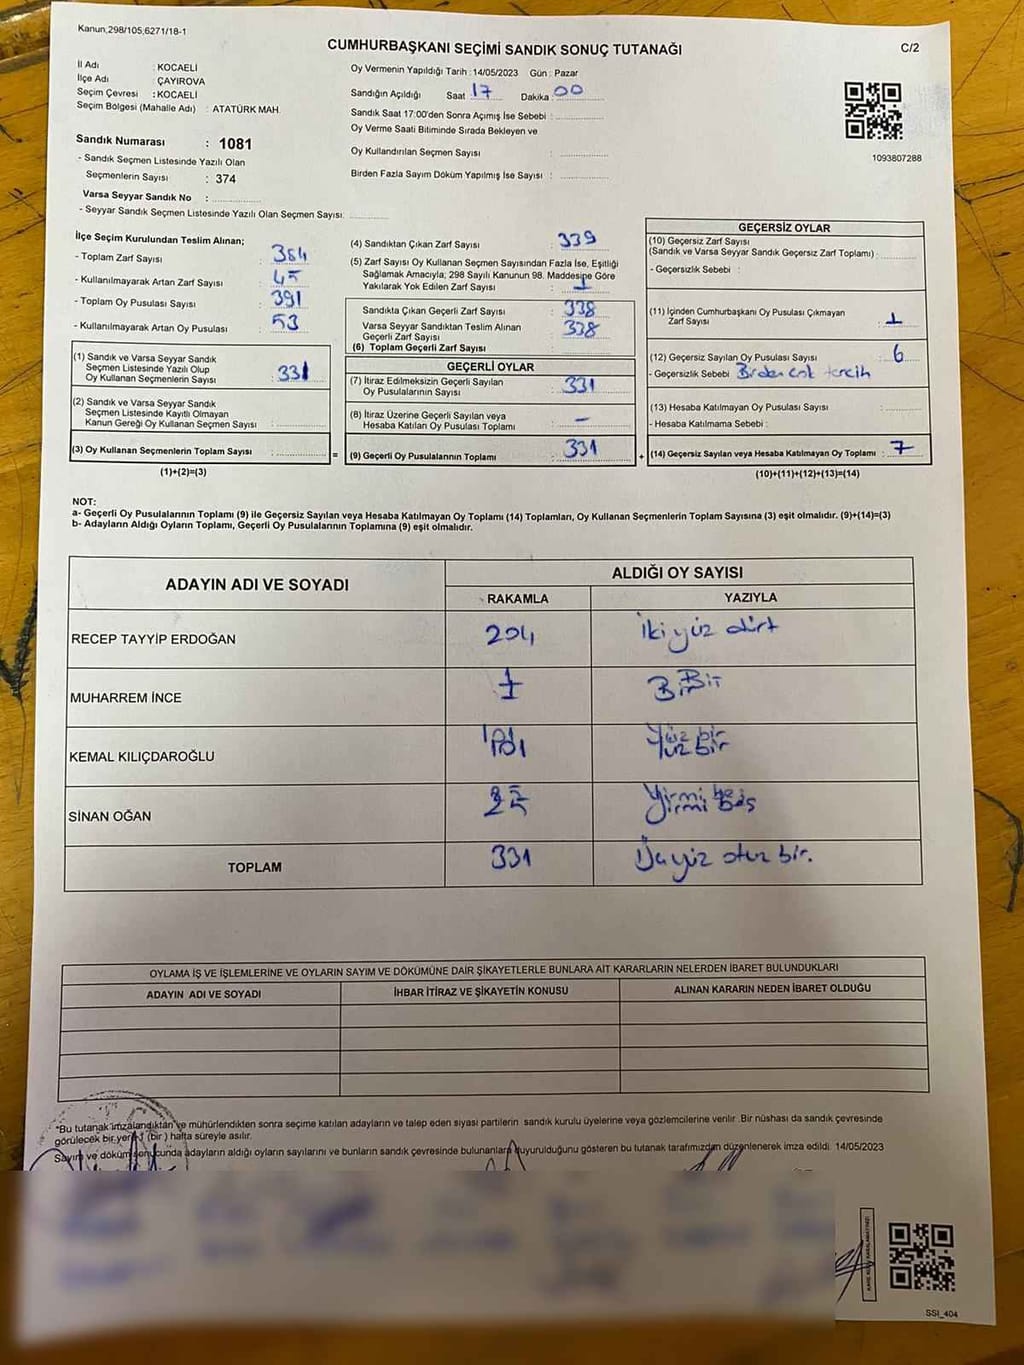 Kanun,298/105,6271/18-1
CUMHURBAŞKANI SEÇİMİ SANDIK SONUÇ TUTANAĞI
C/2
İl Adı : KOCAELİ
İlçe Adı : ÇAYIROVA
Seçim Çevresi : KOCAELİ
Seçim Bölgesi (Mahalle Adı) : ATATÜRK MAH.
Sandık Numarası : 1081
- Sandık Seçmen Listesinde Yazılı Olan
Seçmenlerin Sayısı : 374
Varsa Seyyar Sandık No :
- Seyyar Sandık Seçmen Listesinde Yazılı Olan Seçmen Sayısı:
Oy Vermenin Yapıldığı Tarih : 14/05/2023 Gün : Pazar
Sandığın Açıldığı Saat 17 Dakika 00
Sandık Saat 17:00'den Sonra Açımış İse Sebebi :
Oy Verme Saati Bitiminde Sırada Bekleyen ve
Oy Kullandırılan Seçmen Sayısı :
Birden Fazla Sayım Döküm Yapılmış İse Sayısı :
1093807288
İlçe Seçim Kurulundan Teslim Alınan;
- Toplam Zarf Sayısı : 384
- Kullanılmayarak Artan Zarf Sayısı : 45
- Toplam Oy Pusulası Sayısı : 391
- Kullanılmayarak Artan Oy Pusulası : 53
(1) Sandık ve Varsa Seyyar Sandık
Seçmen Listesinde Yazılı Olup
Oy Kullanan Seçmenlerin Sayısı : 331
(2) Sandık ve Varsa Seyyar Sandık
Seçmen Listesinde Kayıtlı Olmayan
Kanun Gereği Oy Kullanan Seçmen Sayısı :
(3) Oy Kullanan Seçmenlerin Toplam Sayısı :
(1)+(2)=(3)
=
(4) Sandıktan Çıkan Zarf Sayısı : 339
(5) Zarf Sayısı Oy Kullanan Seçmen Sayısından Fazla İse, Eşitliği
Sağlamak Amacıyla; 298 Sayılı Kanunun 98. Maddesine Göre
Yakılarak Yok Edilen Zarf Sayısı : 1
Sandıkta Çıkan Geçerli Zarf Sayısı : 338
Varsa Seyyar Sandıktan Teslim Alınan
Geçerli Zarf Sayısı : 338
(6) Toplam Geçerli Zarf Sayısı :
GEÇERLİ OYLAR
(7) İtiraz Edilmeksizin Geçerli Sayılan
Oy Pusulalarının Sayısı : 331
(8) İtiraz Üzerine Geçerli Sayılan veya
Hesaba Katılan Oy Pusulası Toplamı : –
(9) Geçerli Oy Pusulalarının Toplamı : 331
+
GEÇERSİZ OYLAR
(10) Geçersiz Zarf Sayısı
(Sandık ve Varsa Seyyar Sandık Geçersiz Zarf Toplamı) :
- Geçersizlik Sebebi :
(11) İçinden Cumhurbaşkanı Oy Pusulası Çıkmayan
Zarf Sayısı : 1
(12) Geçersiz Sayılan Oy Pusulası Sayısı : 6
- Geçersizlik Sebebi Birden çok tercih
(13) Hesaba Katılmayan Oy Pusulası Sayısı :
- Hesaba Katılmama Sebebi :
(14) Geçersiz Sayılan veya Hesaba Katılmayan Oy Toplamı : 7
(10)+(11)+(12)+(13)=(14)
NOT:
a- Geçerli Oy Pusulalarının Toplamı (9) ile Geçersiz Sayılan veya Hesaba Katılmayan Oy Toplamı (14) Toplamları, Oy Kullanan Seçmenlerin Toplam Sayısına (3) eşit olmalıdır. (9)+(14)=(3)
b- Adayların Aldığı Oyların Toplamı, Geçerli Oy Pusulalarının Toplamına (9) eşit olmalıdır.
ADAYIN ADI VE SOYADI
ALDIĞI OY SAYISI
RAKAMLA YAZIYLA
RECEP TAYYİP ERDOĞAN 204 İki yüz dört
MUHARREM İNCE 1 Bir
KEMAL KILIÇDAROĞLU 101 Yüz bir
SİNAN OĞAN 25 Yirmi beş
TOPLAM 331 Üçyüz otuz bir.
OYLAMA İŞ VE İŞLEMLERİNE VE OYLARIN SAYIM VE DÖKÜMÜNE DAİR ŞİKAYETLERLE BUNLARA AİT KARARLARIN NELERDEN İBARET BULUNDUKLARI
ADAYIN ADI VE SOYADI İHBAR İTİRAZ VE ŞİKAYETİN KONUSU ALINAN KARARIN NEDEN İBARET OLDUĞU
*Bu tutanak imzalandıktan ve mühürlendikten sonra seçime katılan adayların ve talep eden siyasi partilerin sandık kurulu üyelerine veya gözlemcilerine verilir. Bir nüshası da sandık çevresinde
görülecek bir yere 1 (bir) hafta süreyle asılır.
Sayım ve döküm sonucunda adayların aldığı oyların sayılarını ve bunların sandık çevresinde bulunanlara duyurulduğunu gösteren bu tutanak tarafımızdan düzenlenerek imza edildi. 14/05/2023
SSI_404